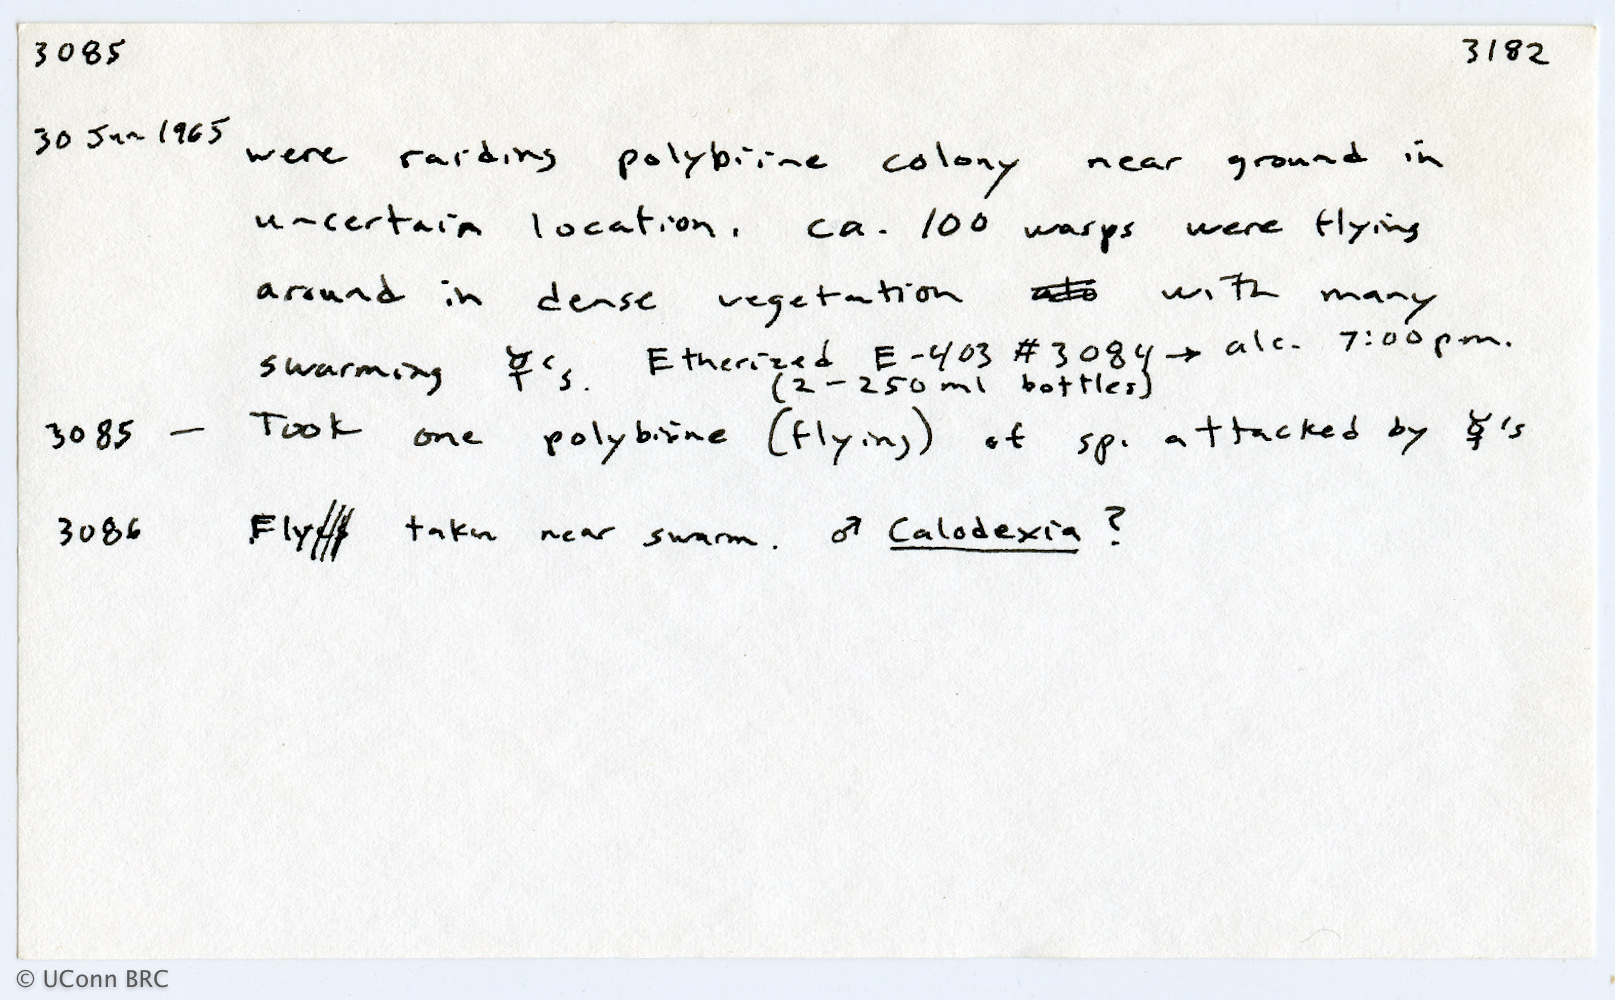 3085 3182
30 Jun 1965 were raiding polybiine colony near ground in
uncertain location. ca. 100 wasps were flying
around in dense vegetation with many
swarming ☿'s. Etherized E-403 #3084 → alc. 7:00 p.m.
(2-250 ml bottles)
3085 — Took one polybiine (flying) of sp. attacked by ☿'s
3086 Fly taken near swarm. ♂ Calodexia ?
© UConn BRC